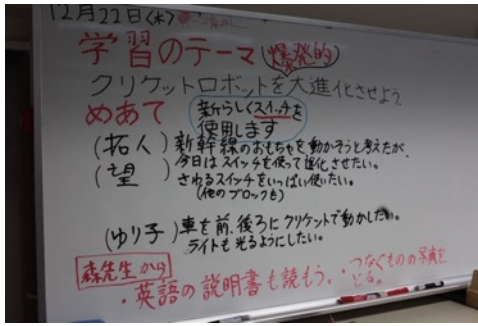 12月22日(木)
学習のテーマ(爆発的)
クリケットロボットを大進化させよう。
めあて
新らしくスイッチを
使用します
(拓人)新幹線のおもちゃを動かそうと考えたが、
(望)今日はスイッチを使って進化させたい。
さわるスイッチをいっぱい使いたい。
(他のブロックも)
(ゆり子)車を前、後ろにクリケットで動かしたい。
ライトも光るようにしたい。
森先生から
・英語の説明書も読もう。・つなぐものの写真を
とる。